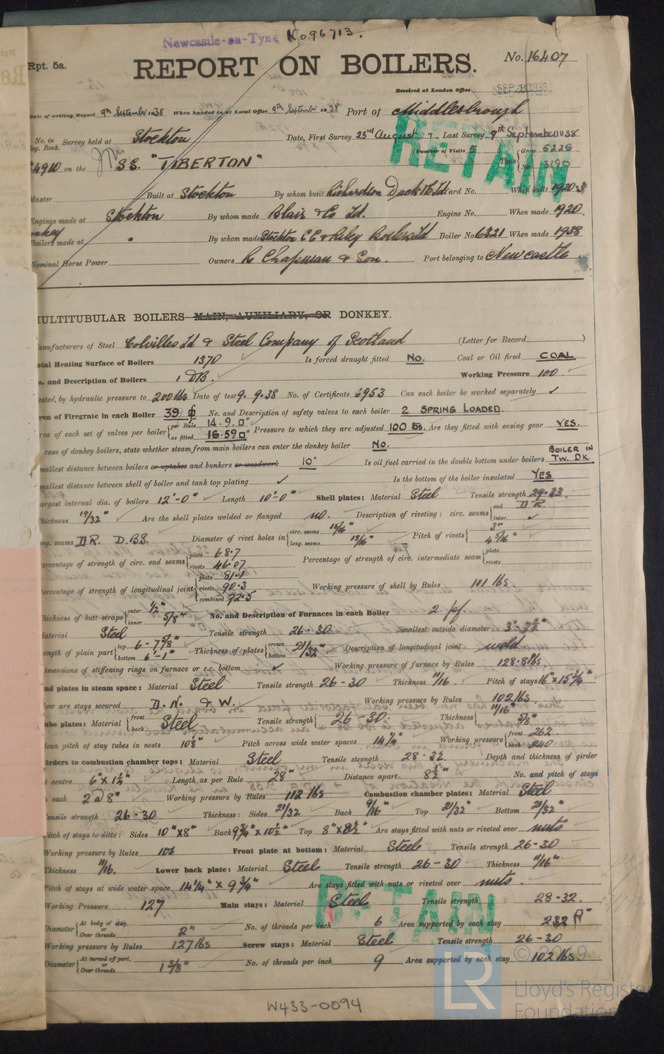 Newcastle-on-Tyne No 96713.
Rpt. 5a.
No. 16407
REPORT ON BOILERS.
Received at London Office
Date of writing Report 9th September 1938 When handed in at Local Office 9th September 1938 Port of Middlesbrough
No. in Survey held at Stockton Date, First Survey 23rd August Last Survey 9th September 1938
Reg. Book. (Number of Visits 5) Gross 5225
on the SS. "TIBERTON" Tons Net 3190
Master Built at Stockton By whom built Richardson Duck & Co Ltd Yard No. When built 1920
Engines made at Stockton By whom made Blair & Co Ltd. Engine No. When made 1920.
Boilers made at " By whom made Stockton C E & Riley Boilers Ltd Boiler No. 6321 When made 1938
Nominal Horse Power Owners R Chapman & Son. Port belonging to Newcastle
MULTITUBULAR BOILERS MAIN, AUXILIARY, OR DONKEY.
Manufacturers of Steel Colvilles Ld & Steel Company of Scotland (Letter for Record )
Total Heating Surface of Boilers 1370 Is forced draught fitted No. Coal or Oil fired COAL
No. and Description of Boilers 1 DB. Working Pressure 100
Tested, by hydraulic pressure to 200 lbs Date of test 9. 9.38 No. of Certificate 6953 Can each boiler be worked separately ✓
Area of Firegrate in each Boiler 39 No. and Description of safety valves to each boiler 2 SPRING LOADED.
Area of each set of valves per boiler per Rule 14.9 □" as fitted 16.59 □" Pressure to which they are adjusted 100 lbs. Are they fitted with easing gear YES.
In case of donkey boilers, state whether steam from main boilers can enter the donkey boiler No.
Smallest distance between boilers or uptakes and bunkers or woodwork 10" Is oil fuel carried in the double bottom under boilers BOILER IN TW. DK.
Smallest distance between shell of boiler and tank top plating ✓ Is the bottom of the boiler insulated YES
Largest internal dia. of boilers 12'-0" Length 10'-0" Shell plates: Material Steel Tensile strength 29-33.
Thickness 19/32" Are the shell plates welded or flanged no. Description of riveting: circ. seams end DR inter. ✓
long. seams DR. D.BS. Diameter of rivet holes in circ. seams 15/16" long. seams 13/16" Pitch of rivets 3" 4 5/16"
Percentage of strength of circ. end seams plate 68.7 rivets 46.07 Percentage of strength of circ. intermediate seam plate rivets
Percentage of strength of longitudinal joint plate 81.1 rivets 90.3 combined 92.5 Working pressure of shell by Rules 101 lbs
Thickness of butt straps outer 1/2" inner 5/8" No. and Description of Furnaces in each Boiler 2 pf.
Material Steel Tensile strength 26-30 Smallest outside diameter
Length of plain part top 6-7 5/8" bottom 6'-1" Thickness of plates crown bottom 21/32" Description of longitudinal joint weld
Dimensions of stiffening rings on furnace or c.c. bottom ✓ Working pressure of furnace by Rules 128.8 lbs
End plates in steam space: Material Steel Tensile strength 26-30 Thickness 11/16" Pitch of stays 16" x 15 3/4"
How are stays secured D.N. & W. Working pressure by Rules 102 lbs.
Tube plates: Material front back Steel Tensile strength 26-30. Thickness 11/16" 5/8"
Mean pitch of stay tubes in nests 10 1/8" Pitch across wide water spaces 14 1/4" Working pressure front 262 back 240
Girders to combustion chamber tops: Material Steel Tensile strength 28-32. Depth and thickness of girder
at centre 6" x 1 1/4" Length as per Rule 28" Distance apart 8 1/2" No. and pitch of stays
in each 2 @ 8" Working pressure by Rules 112 lbs Combustion chamber plates: Material Steel
Tensile strength 26-30 Thickness: Sides 21/32 Back 9/16" Top 21/32" Bottom 21/32"
Pitch of stays to ditto: Sides 10" x 8" Back 9 3/4" x 10 1/2" Top 8" x 8 1/2" Are stays fitted with nuts or riveted over nuts
Working pressure by Rules 102 Front plate at bottom: Material Steel Tensile strength 26-30
Thickness 11/16. Lower back plate: Material Steel Tensile strength 26-30 Thickness 11/16"
Pitch of stays at wide water space 14 1/4" x 9 3/4" Are stays fitted with nuts or riveted over nuts.
Working Pressure 127 Main stays: Material Steel Tensile strength 28-32.
Diameter At body of stay, or Over threads 2" No. of threads per inch 6 Area supported by each stay 252
Working pressure by Rules 127 lbs Screw stays: Material Steel Tensile strength 26-30
Diameter At turned off part, or Over threads 1 3/8" No. of threads per inch 9 Area supported by each stay 102 lbs.
RETAIN
RETAIN
W433-0094
© 2019
LR Lloyd's Register
Foundation